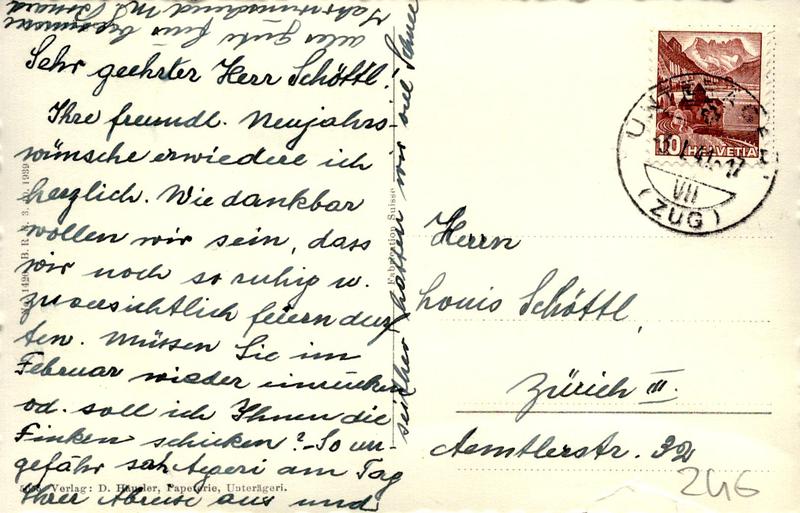 Sehr geehrter Herr Schöttl!
Ihre freundl. Neujahrs-
wünsche erwiedere ich
herzlich. Wie dankbar
wollen wir sein, dass
wir noch so ruhig u.
zuversichtlich feiern durf-
ten. Müssen Sie im
Februar wieder einrücken
od. soll ich Ihnen die
Finken schicken? - So un-
gefähr sah Ägeri am Tag
Ihrer Abreise aus und
seither hatten wir viel Schnee
alles Gute fürs begonnene
Verlag: D. Häusler, Papeterie, Unterägeri.
Fabrication Suisse
10 HELVETIA
VII
(ZUG)
Herrn
Louis Schöttl,
Zürich III.
Aemtlerstr. 32
246